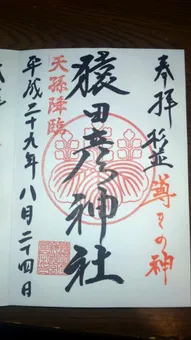 奉拝
導きの神
猿田彦神社
天孫降臨
平成二十九年八月二十四日